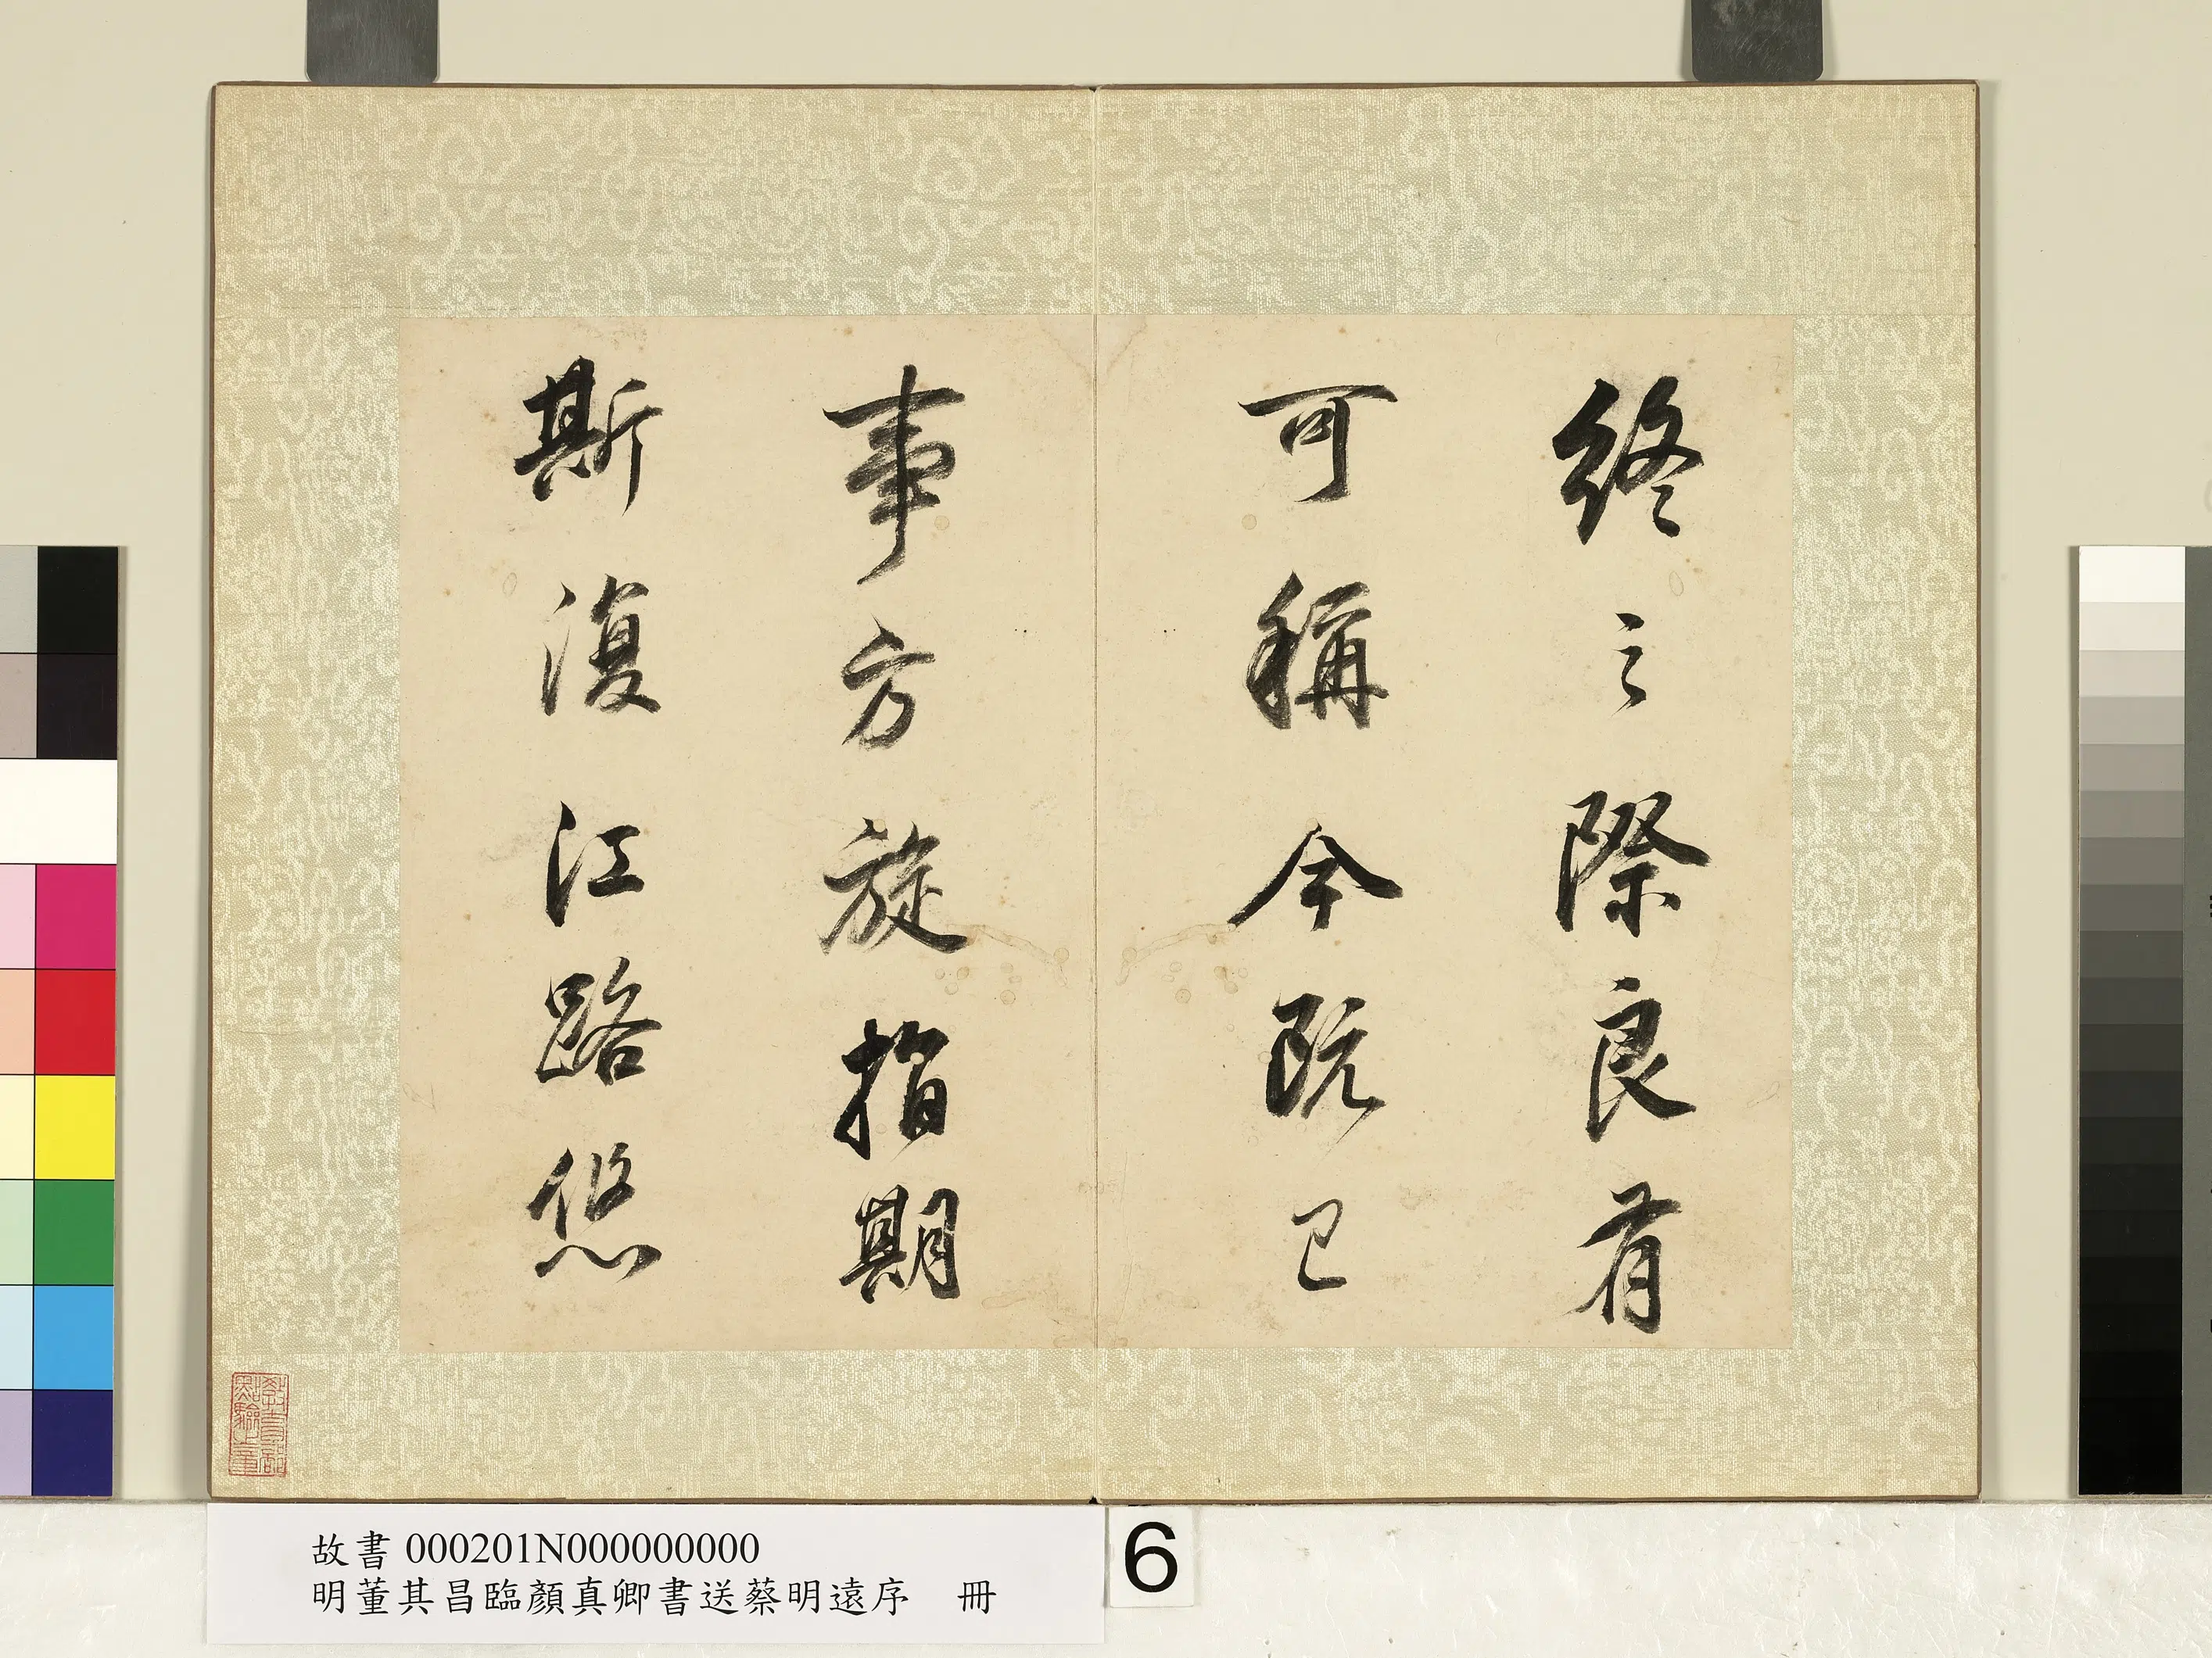 終之際良有
可稱今既已
事方旋指期
斯復江路悠
教育部
點驗之章
故書 000201N000000000
明董其昌臨顏真卿書送蔡明遠序　冊
6